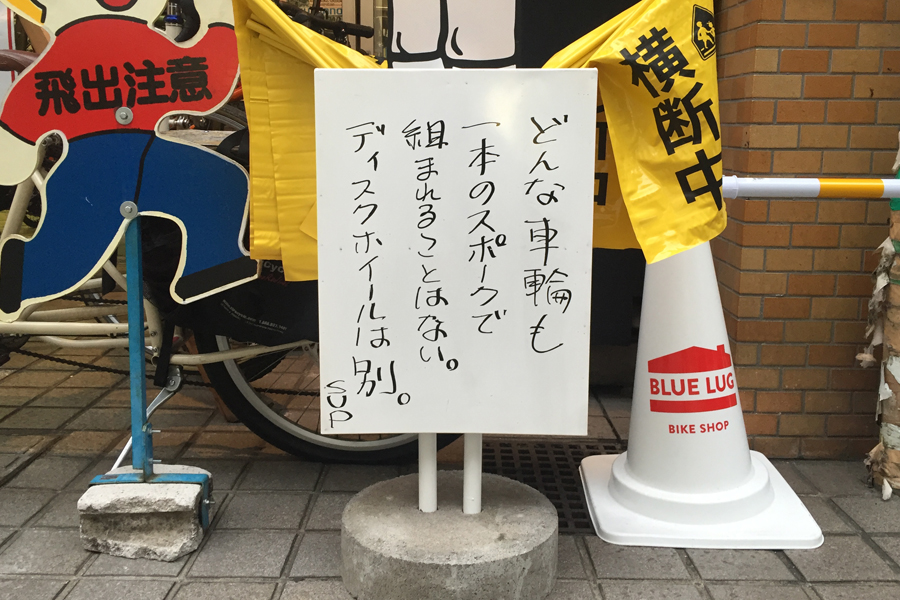 飛出注意
どんな車輪も
一本のスポークで
組まれることはない。
ディスクホイールは別。
SUP
横断中
BLUE LUG
BIKE SHOP